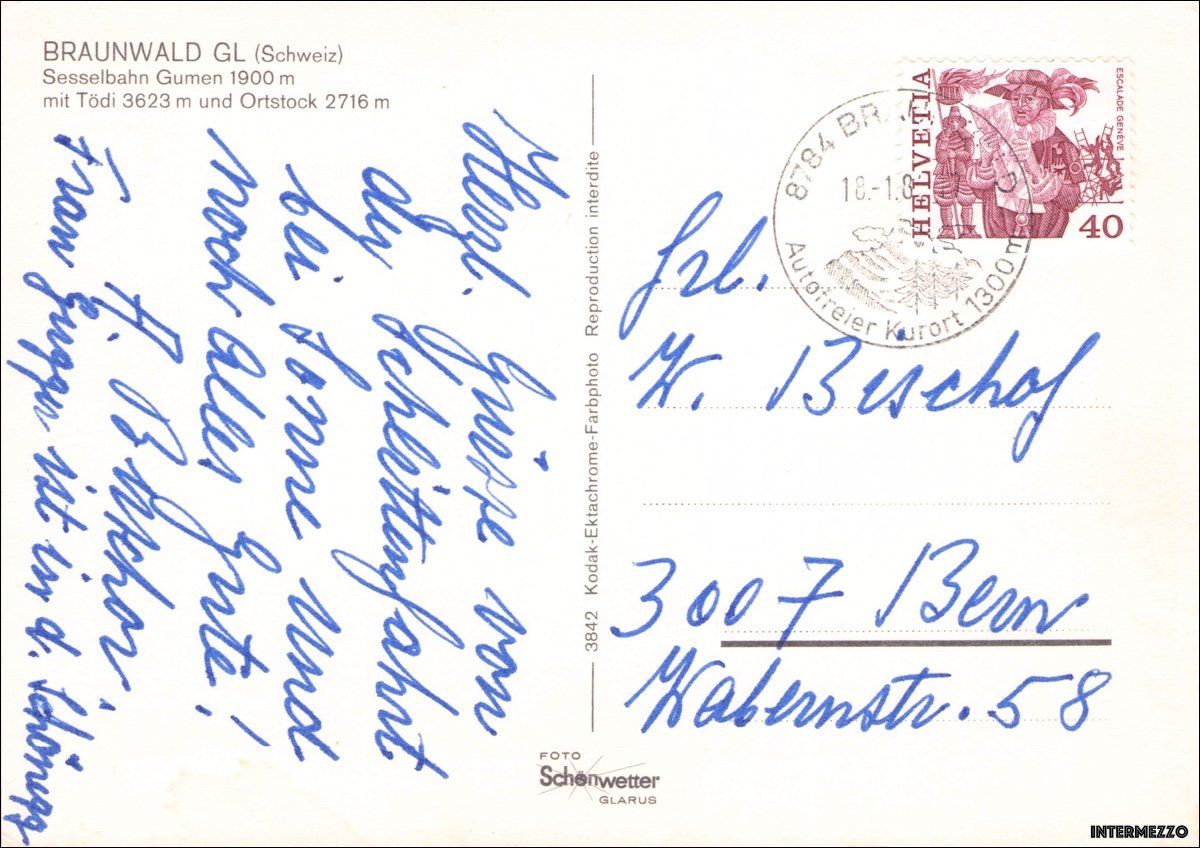 BRAUNWALD GL (Schweiz)
Sesselbahn Gumen 1900 m
mit Tödi 3623 m und Ortstock 2716 m
Herzl. Grüsse von
der Schlittenfahrt
bei Sonne und
noch alles Gute!
H.
Frau ist in d.
3842 Kodak-Ektachrome-Farbphoto Reproduction interdite
FOTO
Schönwetter
GLARUS
HELVETIA
ESCALADE GENÈVE
40
8784 BRA D
18.-1.8
Autofreier Kurort 1300m
Frl.
W. Bischof
3007 Bern
Wabernstr. 58
INTERMEZZO